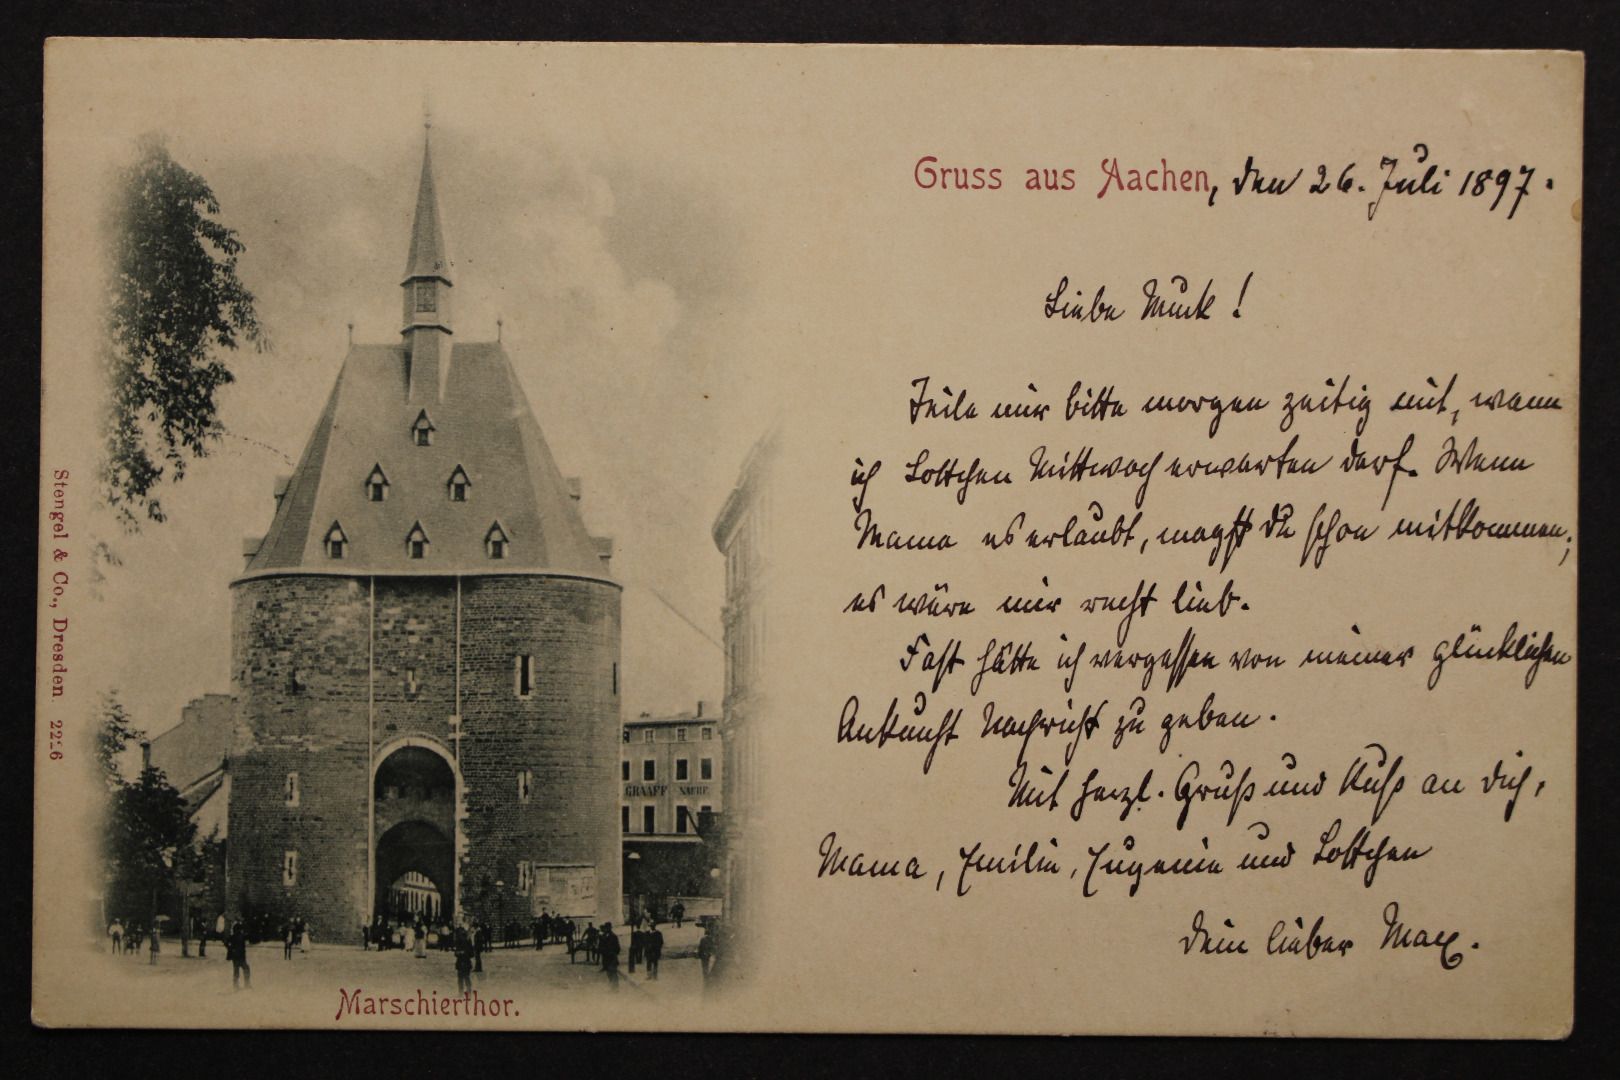 Gruss aus Aachen, den 26. Juli 1897.
Liebe Muck!
Teile mir bitte morgen zeitig mit, wann
ich Lottchen Mittwoch erwarten darf. Wenn
Mama es erlaubt, magst Du schon mitkommen;
es wäre mir recht lieb.
Fast hätte ich vergessen von meiner glücklichen
Ankunft Nachricht zu geben.
Mit herzl. Gruß und Kuß an Dich,
Mama, Emilie, Eugenie und Lottchen
Dein lieber Max.
Marschierthor.
Stengel & Co., Dresden. 2226
GRAAFF